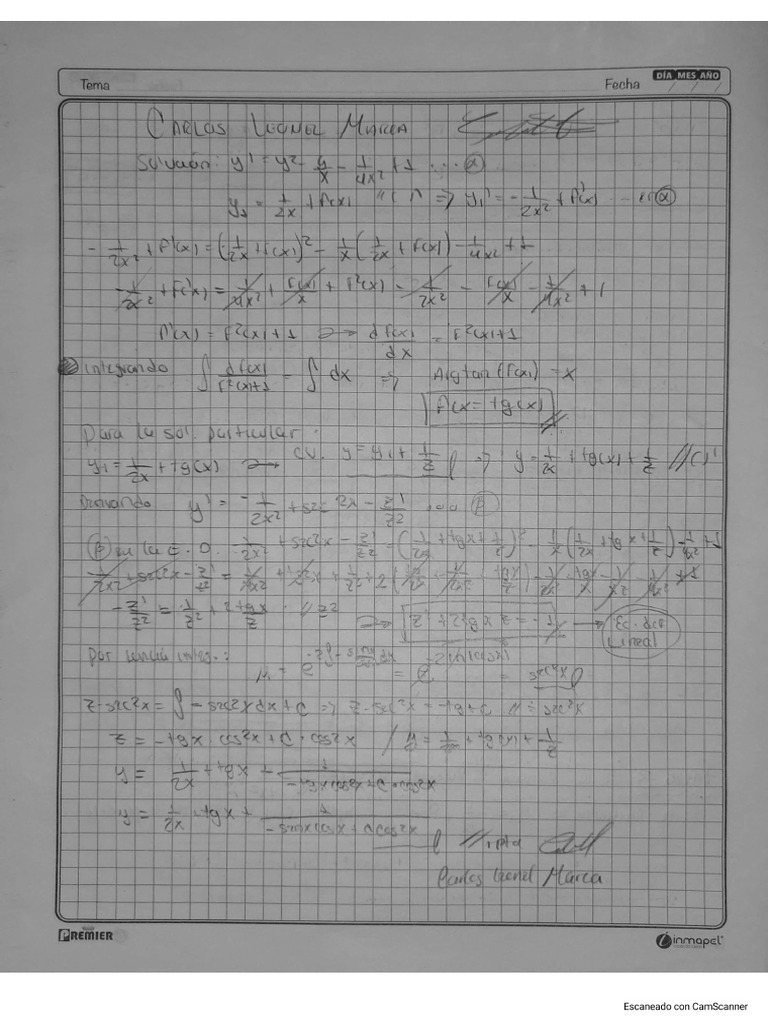 Tema
Fecha
DÍA MES AÑO
CARLOS LEONEL MARCA
Solución: y' = y² - y/x - 1/4x² + 1 ... (α)
y₁ = 1/2x + f(x) //( )' => y₁' = -1/2x² + f'(x) ... en (α)
-1/2x² + f'(x) = (1/2x + f(x))² - 1/x (1/2x + f(x)) - 1/4x² + 1
-1/2x² + f'(x) = 1/4x² + f(x)/x + f²(x) - 1/2x² - f(x)/x - 1/4x² + 1
f'(x) = f²(x) + 1 → df(x)/dx = f²(x) + 1
integrando ∫ df(x)/f²(x)+1 = ∫ dx => Arctan(f(x)) = x
f(x) = tg(x)
Para la sol particular.
y₁ = 1/2x + tg(x) → C.V. y = y₁ + 1/z => y = 1/2x + tg(x) + 1/z //( )'
Derivando y' = -1/2x² + sec²x - z'/z² ... (β)
(β) en la E.O. -1/2x² + sec²x - z'/z² = (1/2x + tgx + 1/z)² - 1/x (1/2x + tgx + 1/z) - 1/4x² + 1
-z'/z² = 1/z² + 2tgx/z // z²
→ z' + 2tgx z = -1 → Ec. dif Lineal
= sec²x
z·sec²x = ∫ -sec²x dx + C => z·sec²x = -tgx + C // ÷ sec²x
z = -tgx·cos²x + C·cos²x / y = 1/2x + tg(x) + 1/z
y = 1/2x + tgx + 1/-tgx cos²x + C·cos²x
y = 1/2x + tgx + 1/-sinx cosx + C cos²x
// rpta
Carlos Leonel Marca
PREMIER
inmapel
Escaneado con CamScanner